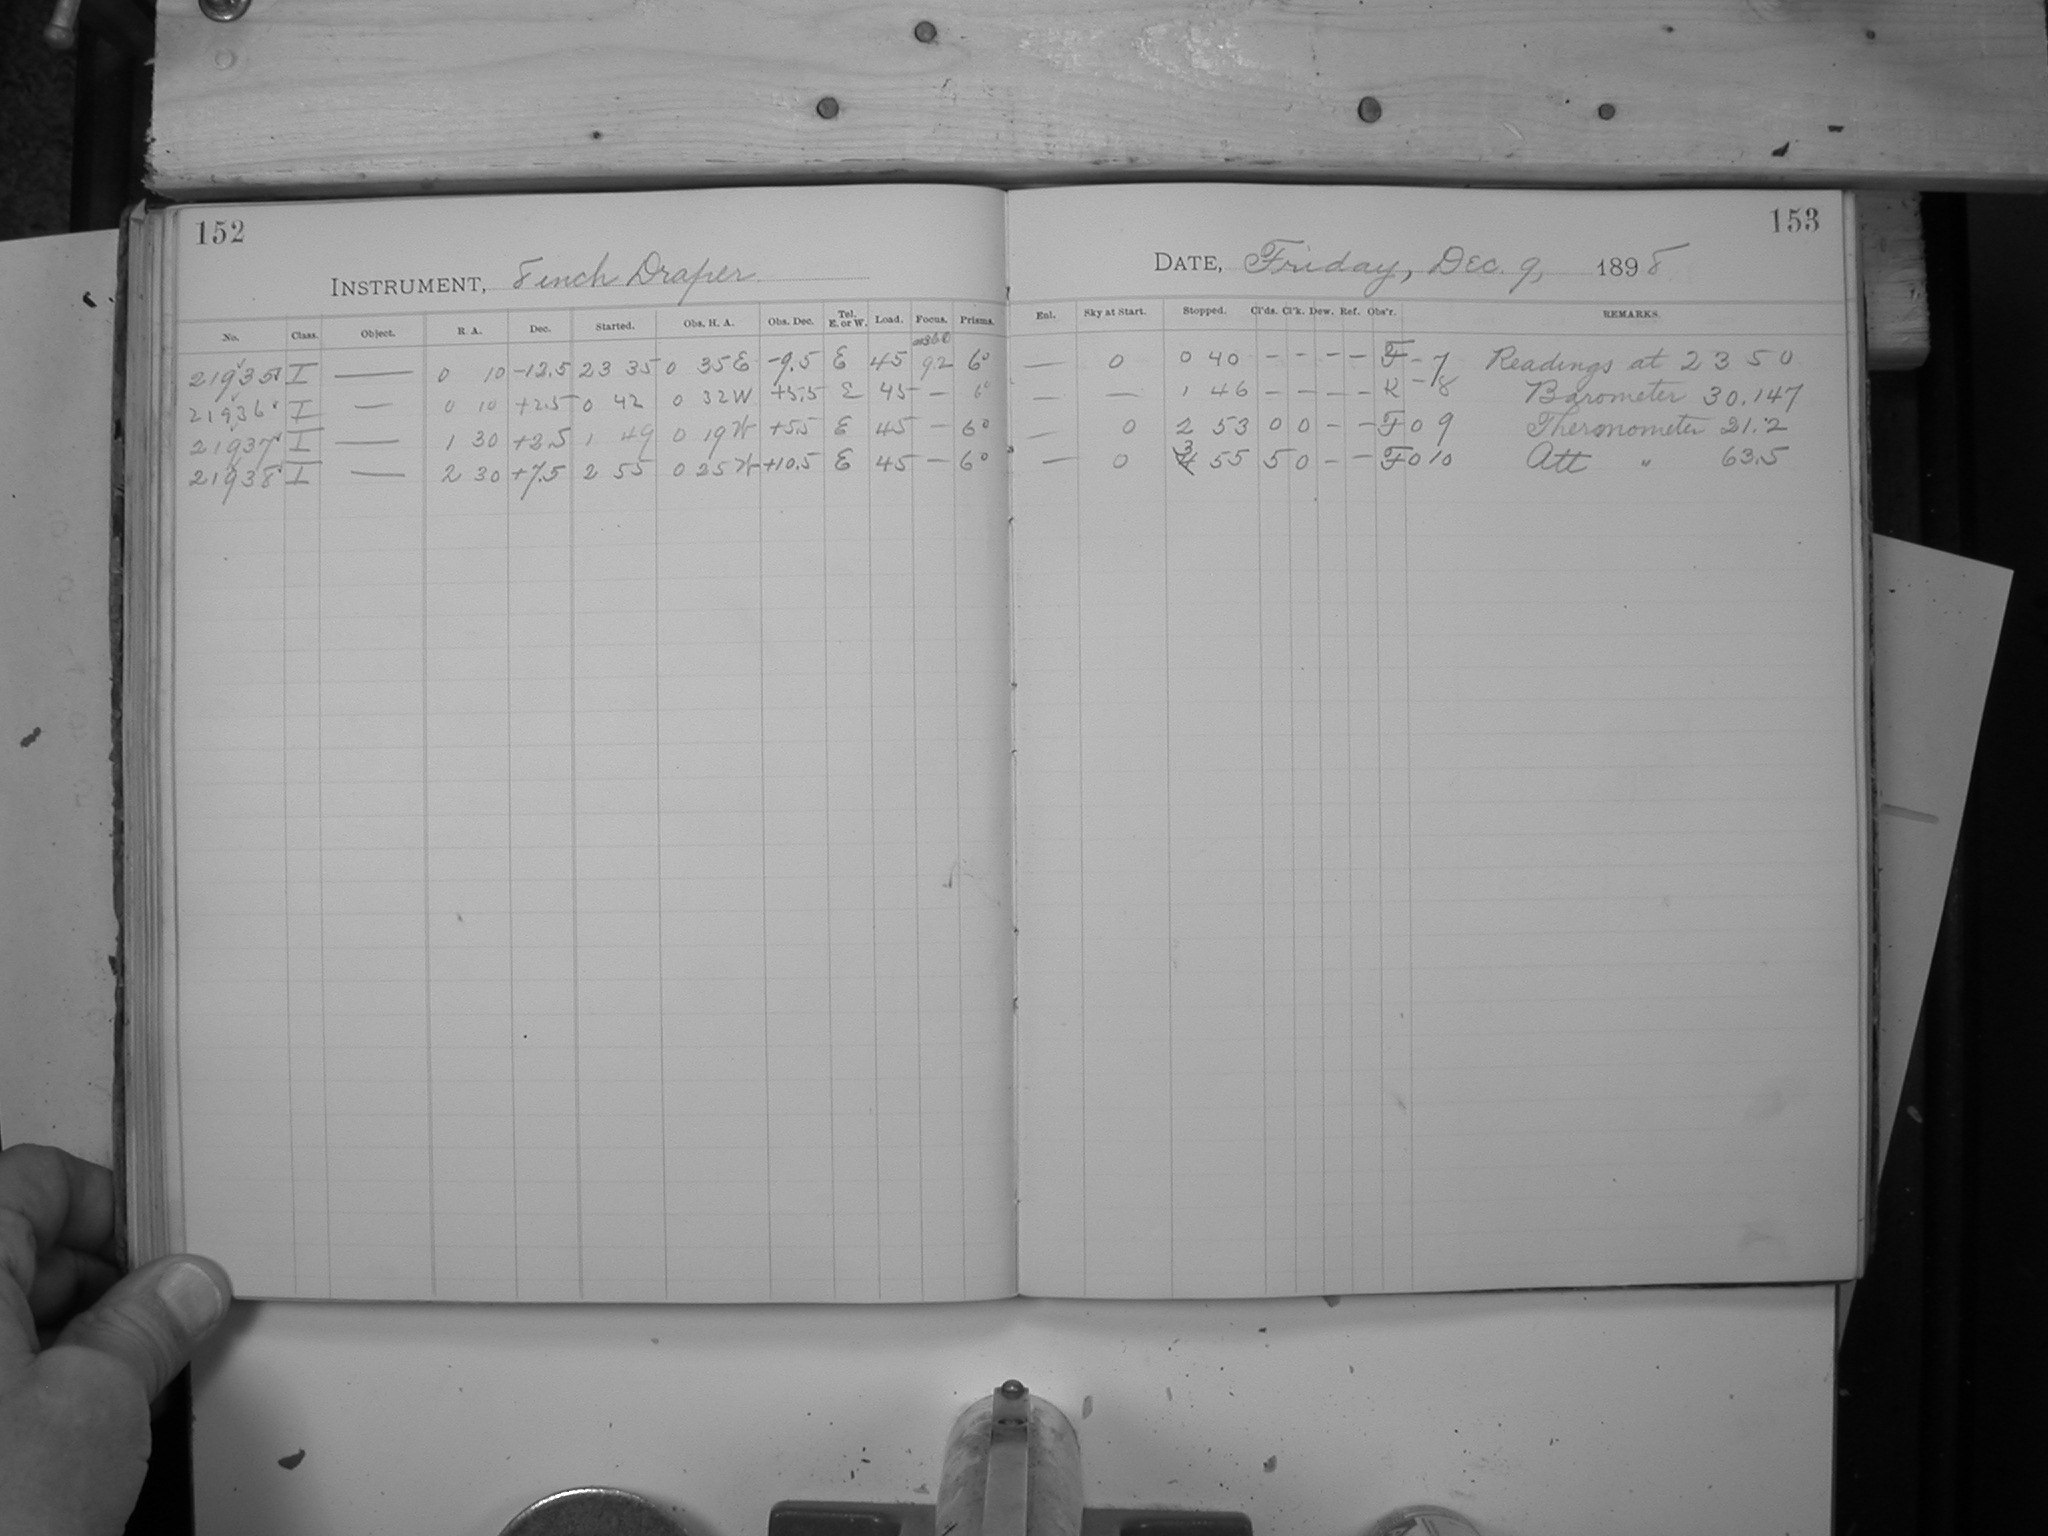 152
153
INSTRUMENT, 8 inch Draper
DATE, Friday, Dec. 9, 1898
No. Class. Object. R. A. Dec. Started. Obs. H. A. Obs. Dec. Tel. E. or W. Load. Focus. Prisms. Enl. Sky at Start. Stopped. Cl'ds. Cl'k. Dew. Ref. Obs'r. REMARKS.
21935 I — 0 10 -12.5 23 35 0 35 E -9.5 E 45 92 6° — 0 0 40 - - - - F - 7 Readings at 23 50
21936 I — 0 10 +2.5 0 42 0 32 W +5.5 E 45 — 6° — — 1 46 - - - - K - 8 Barometer 30.147
21937 I — 1 30 +2.5 1 49 0 19 W +5.5 E 45 — 6° — 0 2 53 0 0 - - F 0 9 Thermometer 21.2
21938 I — 2 30 +7.5 2 55 0 25 W +10.5 E 45 — 6° — 0 3 55 5 0 - - F 0 10 Att " 63.5